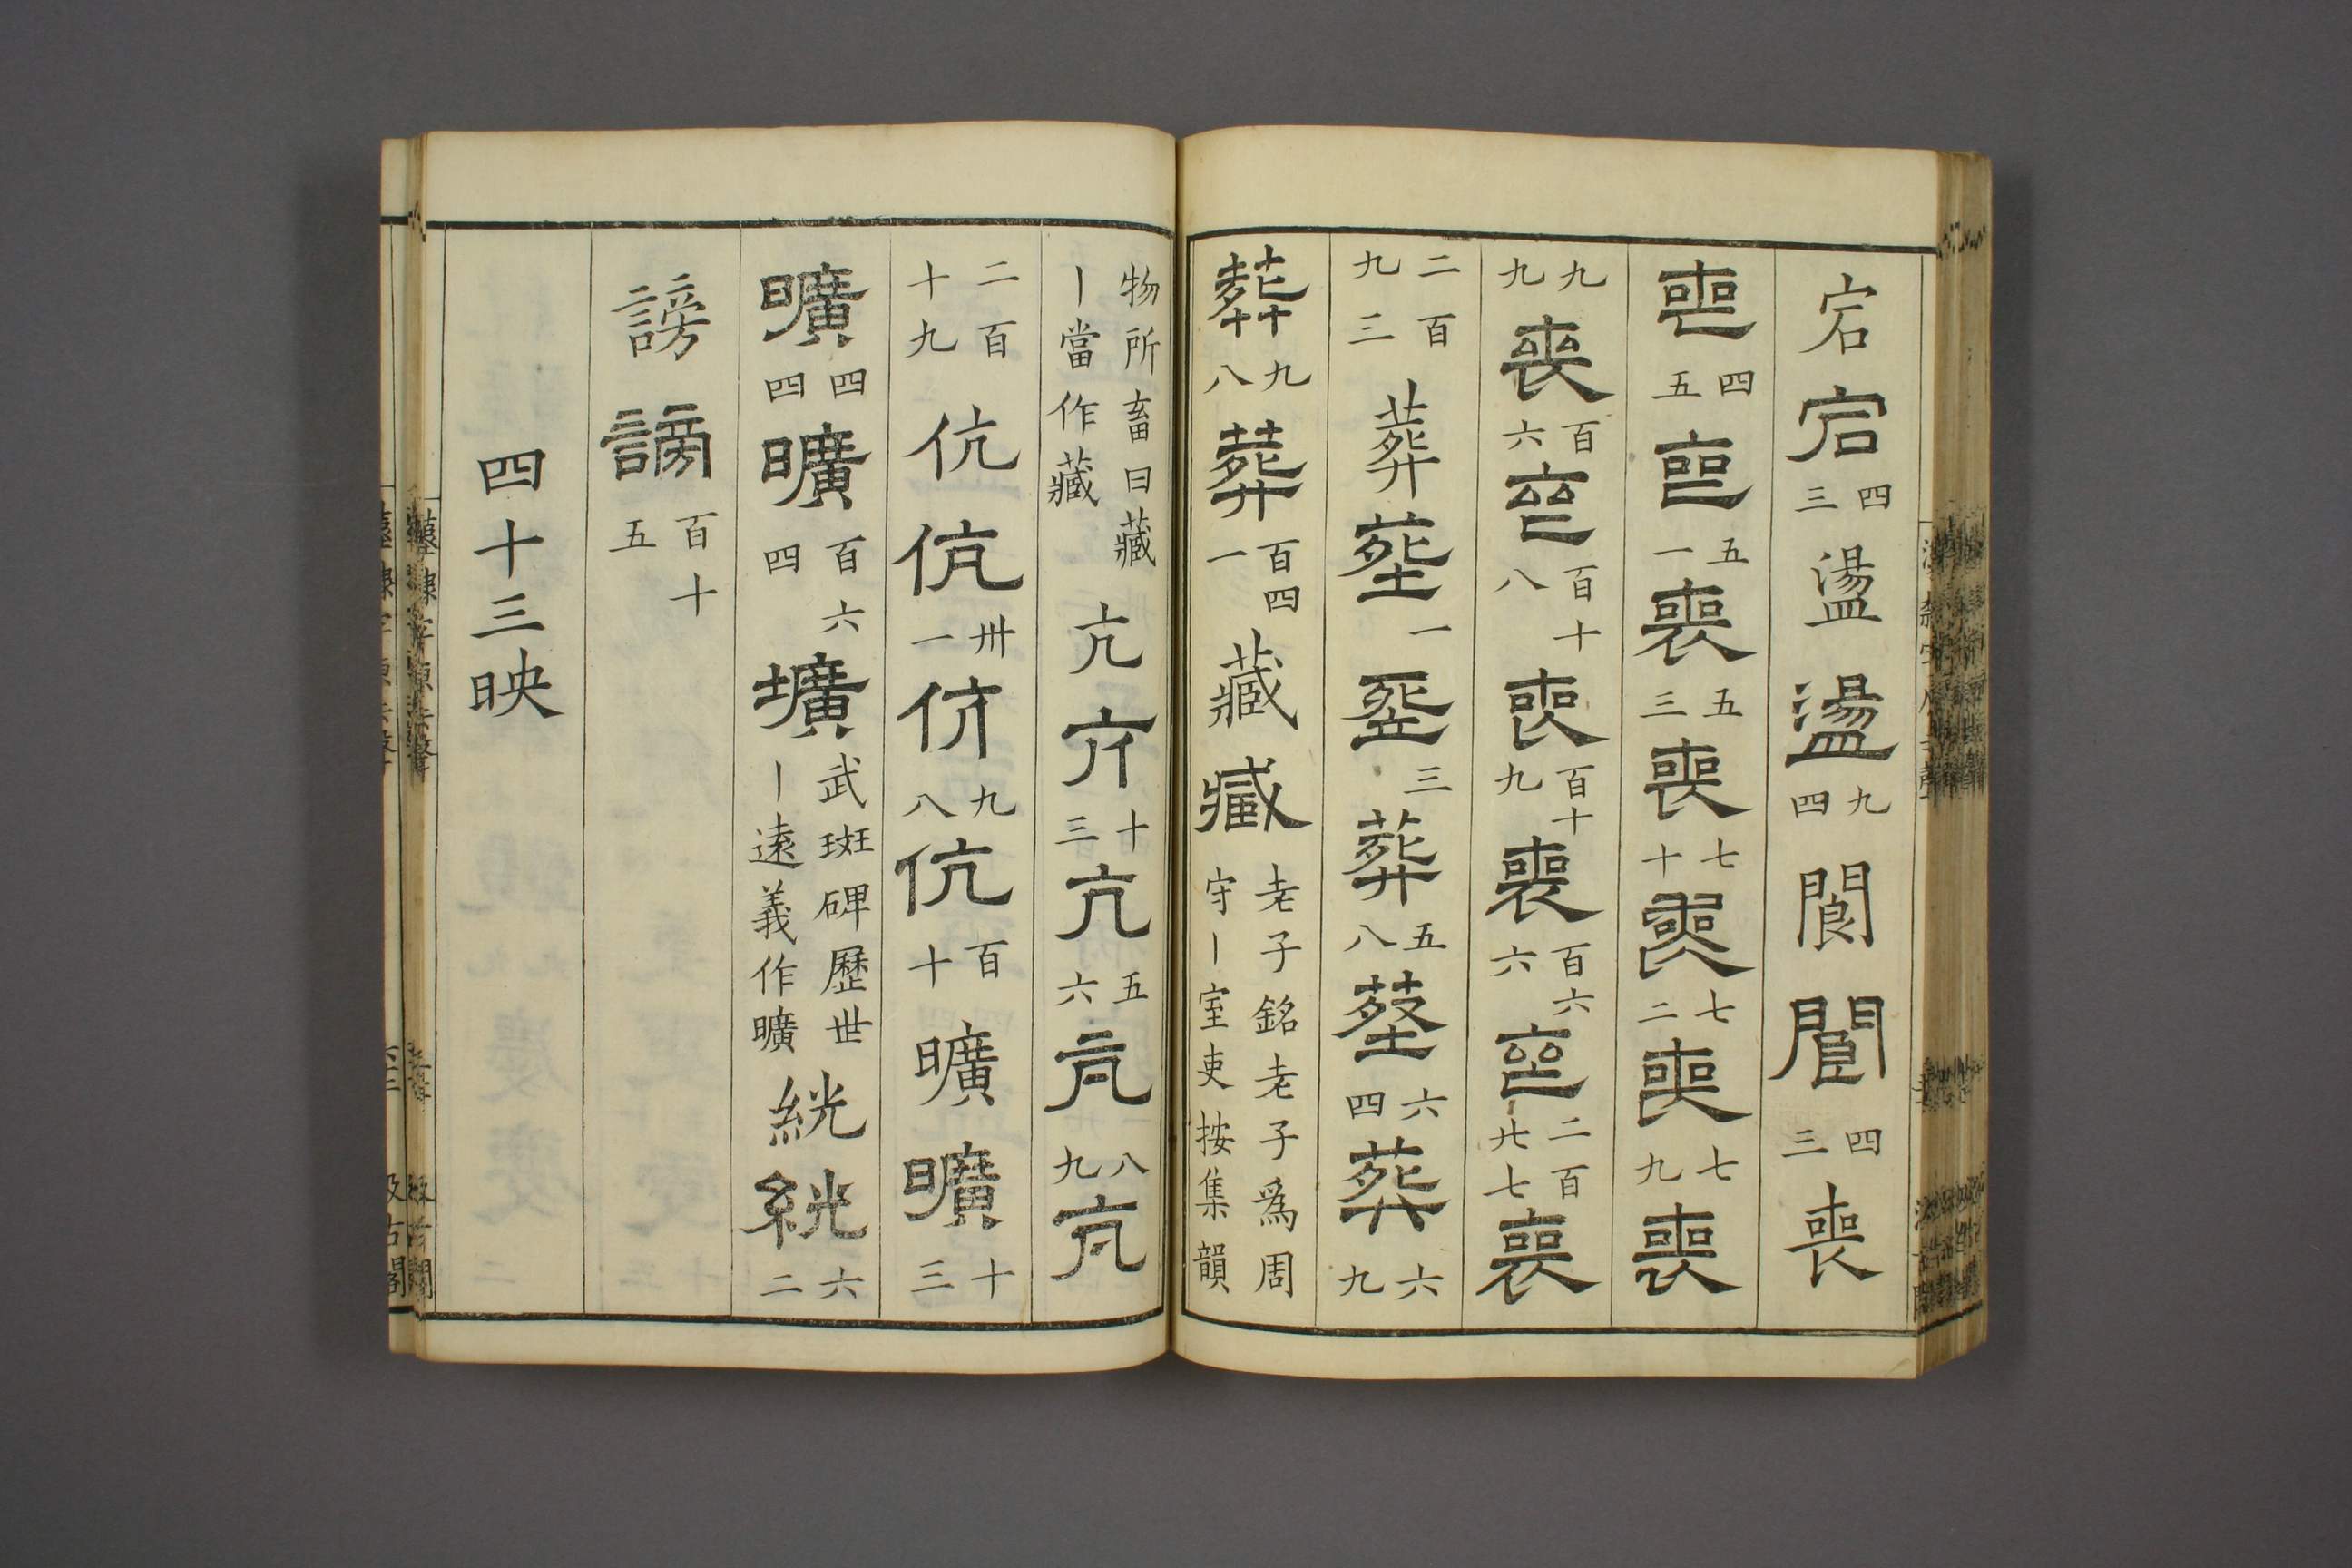 宕宕四三盪盪九四閬閬四三喪
喪四五喪五一喪五三喪七十喪七二喪七九喪
九九喪百六喪百十八喪百十九喪百六六喪二百廿七喪
二百九三葬葬一葬三葬五八葬六四葬六九
葬九八葬百四一藏藏老子銘老子爲周守丨室吏按集韻
物所畜曰藏丨當作藏亢亢十三亢五六亢八九亢
二百十九伉伉卅一伉九八伉百十曠曠十三
曠四四曠百六四壙武斑碑歷世丨遠義作曠絖絖六二
謗謗百十五
四十三映